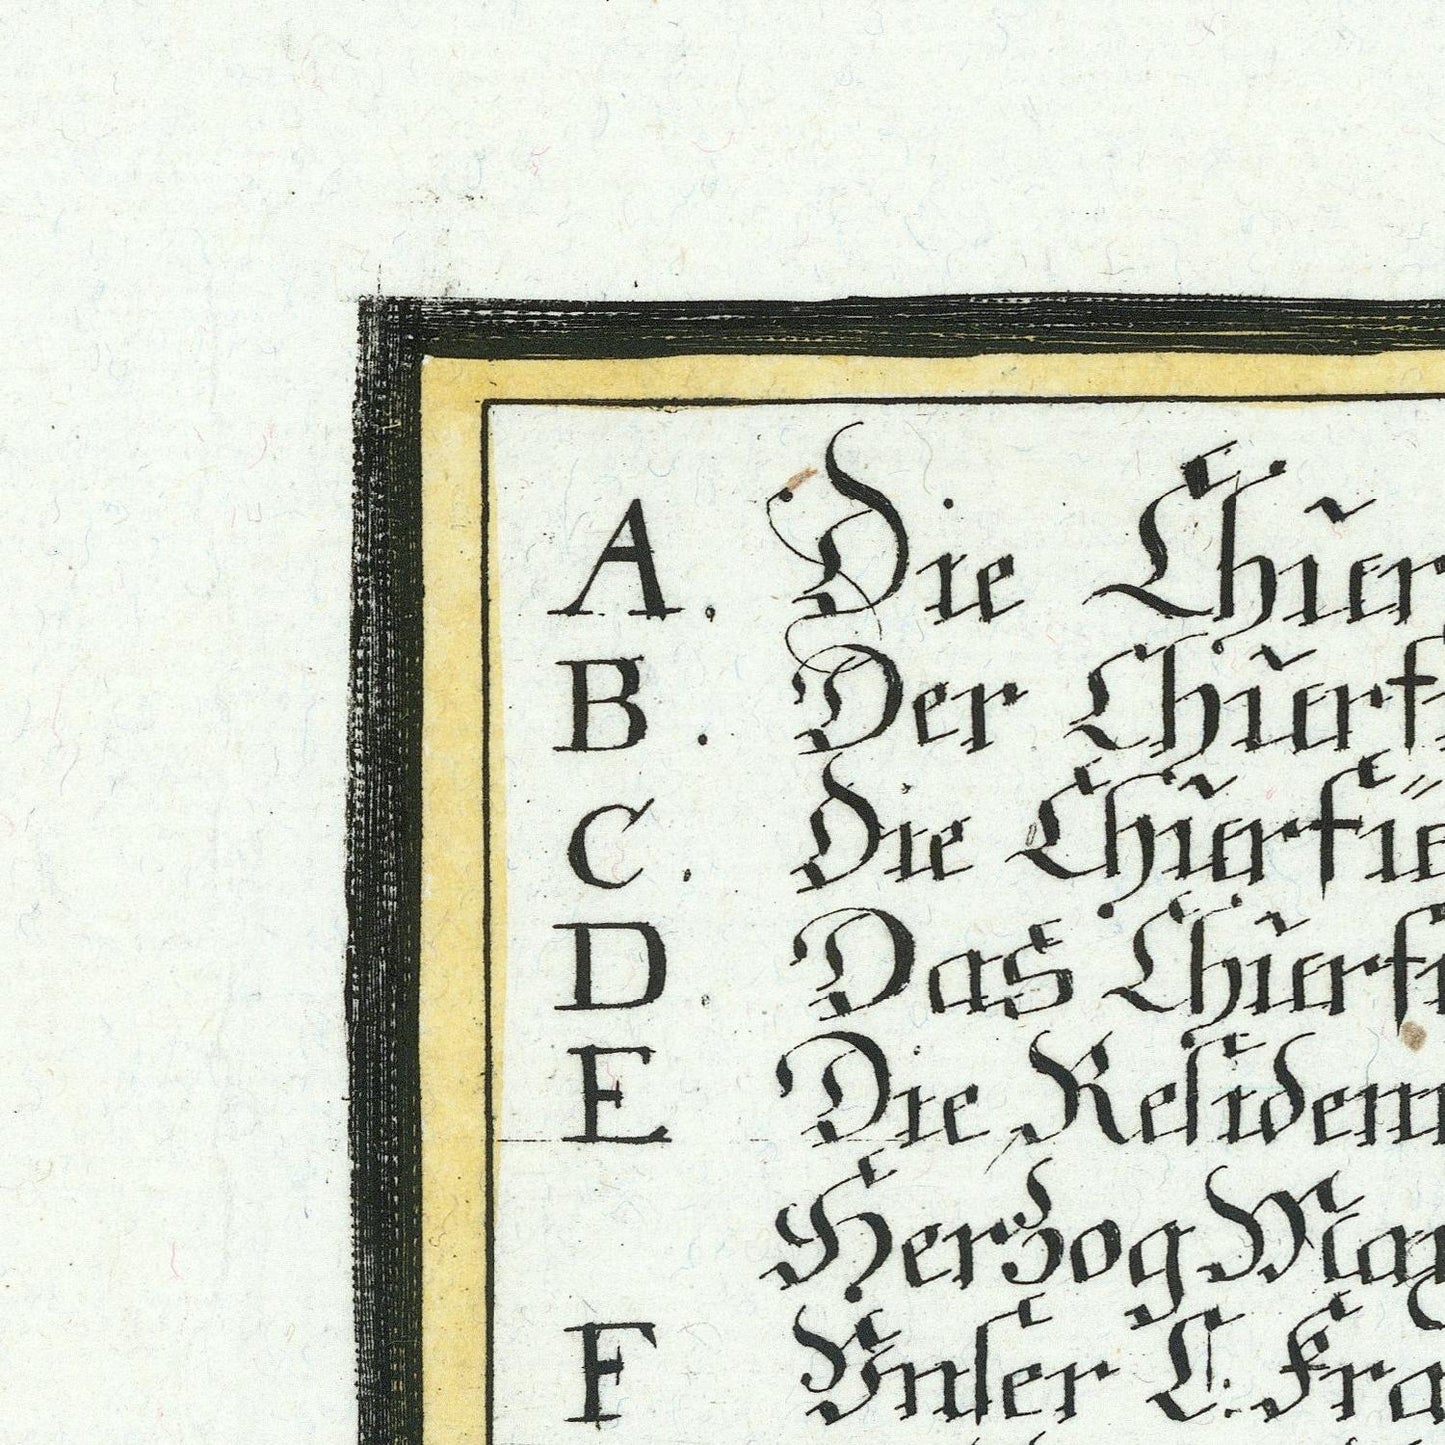 A. Die Chŭr
B. Der Chŭrf
C. Die Chŭrfü
D. Das Chŭrf
E Die Residen
Herzog Max
F Vnser L. Fra